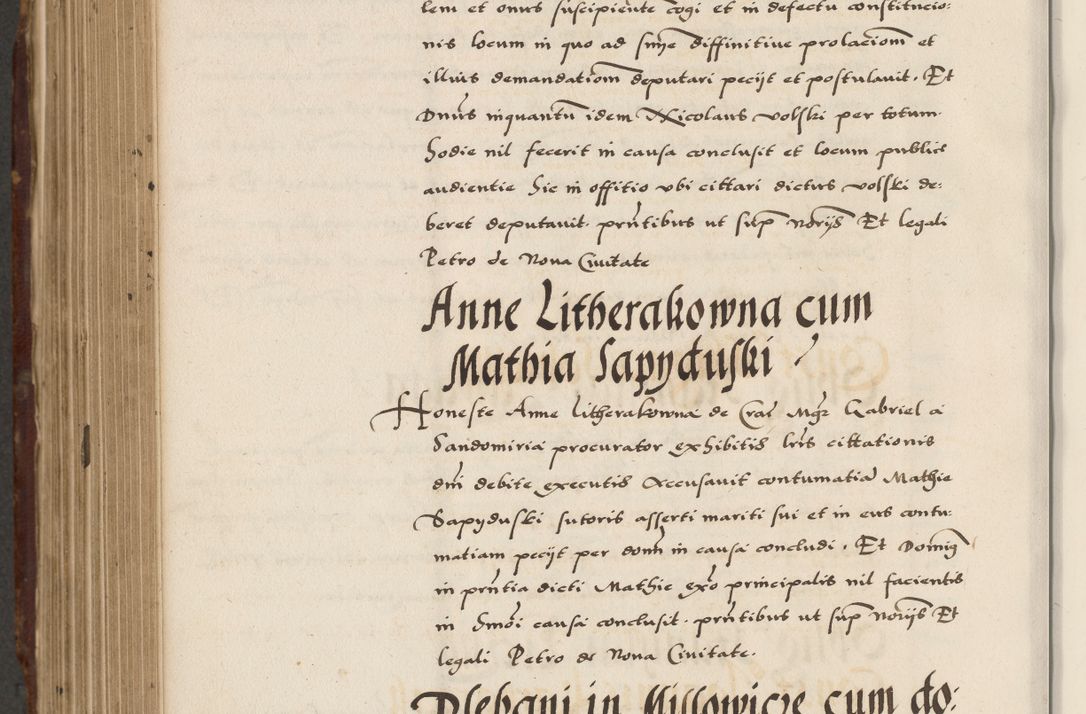 lem et onus suscipiente cogi et in defectu constitucio:
nis locum in quo ad sniē diffinitive prolacionē et
illius demandationē deputari pecijt et postulavit. Et
Dnus inquantū idem Nicolaus volski per totum
hodie nil fecerit in causa conclusit et locum publice
audientie hic in offitio ubi cittari dictus volski de:
beret deputavit. prntibus ut sup norijs Et legali
Petro de Nova Civitate
Anne Litherakowna cum
Mathia Sapyduski
Honeste Anne Litherakowna de Crac Mgr Gabriel a
Sandomiria procurator exhibitis lris cittationis
dni debite executis Accusavit contumatia Mathie
Sapyduski sutoris asserti mariti sui et in eius contu:
matiam pecijt per domn in causa concludi. Et Domin9
in prntia dicti Mathie exo principalis nil facientis
in hmoi causa conclusit. prntibus ut sup norijs Et
legali Petro de Nova Civitate.
Plebani in Missowicze cum do: